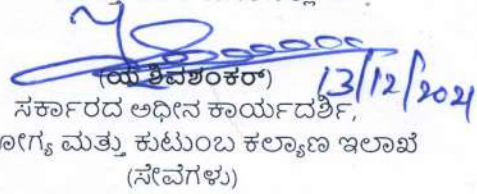 (ಯ ಶಿವಶಂಕರ್)
13/12/2021
ಸರ್ಕಾರದ ಅಧೀನ ಕಾರ್ಯದರ್ಶಿ,
ೋಗ್ಯ ಮತ್ತು ಕುಟುಂಬ ಕಲ್ಯಾಣ ಇಲಾಖೆ
(ಸೇವೆಗಳು)